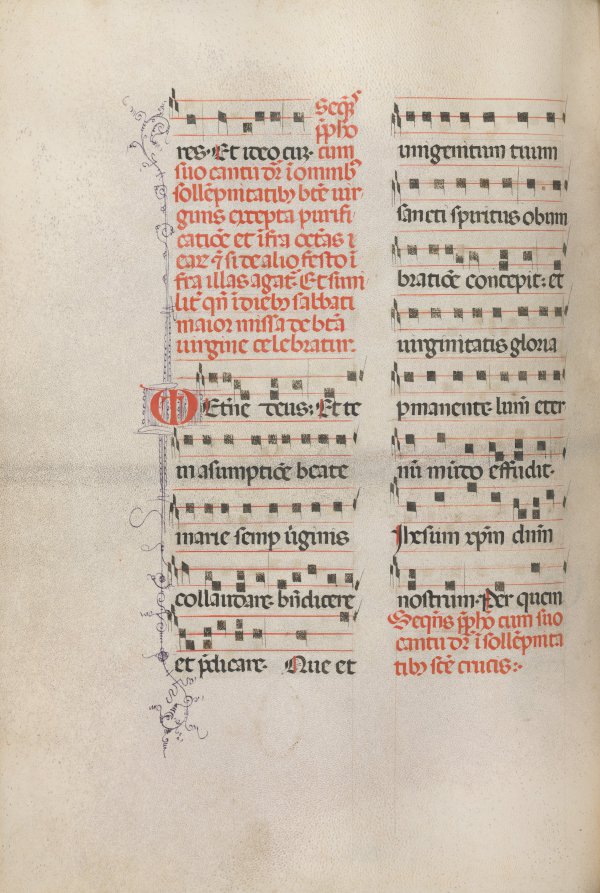 Seqⁿs
p̄pho
res. Et ideo cū.
cum
suo cantu dr̄ ī omnibꝫ
sollēpnitatibꝫ btē vir
ginis excepta purifi
catiōe et īfra octa͞s
si de alio festo ī
fra illas agat̄. Et simi
lit̄ qn̄ ī diebꝫ sabbati
maior missa de btā
uirgine celebratur.
Eterne deus: Et te
in asumptiōe beate
marie semp ūginis
collaudare bn̄dicere
et p̄dicare. Que et
unigenitum tuum
sancti spiritus obum
bratiōe concepit: et
uirginitatis gloria
pmanente lumē eter
nū mūdo effudit.
Ihesum xp̄m dn̄m
nostrum. Per quem
Seqn̄s p̄pho cum suo
cantu dr̄ ī sollēpnita
tibꝫ stē crucis: